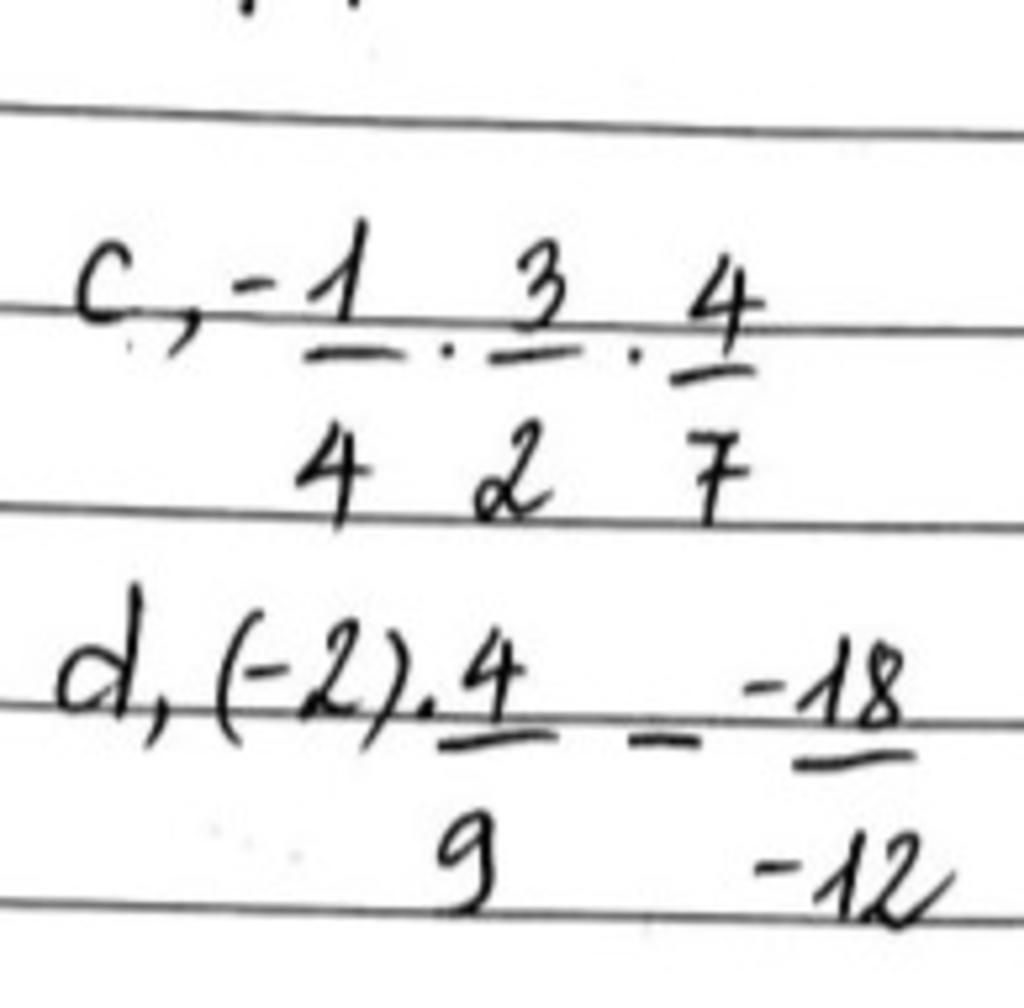 c, -1/4 · 3/2 · 4/7
d, (-2) . 4/9 - -18/-12